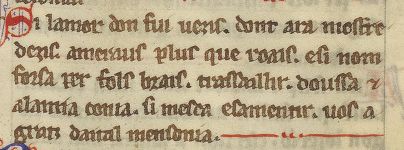 Si lamor don fui uers. dont ara mostre
deris. ameraus plus que roais. esi nom
forsa per fols brais. trassaillir. doussa ⁊
alamia conia. si mesca esamentir. uos a
grat daital mensonia.